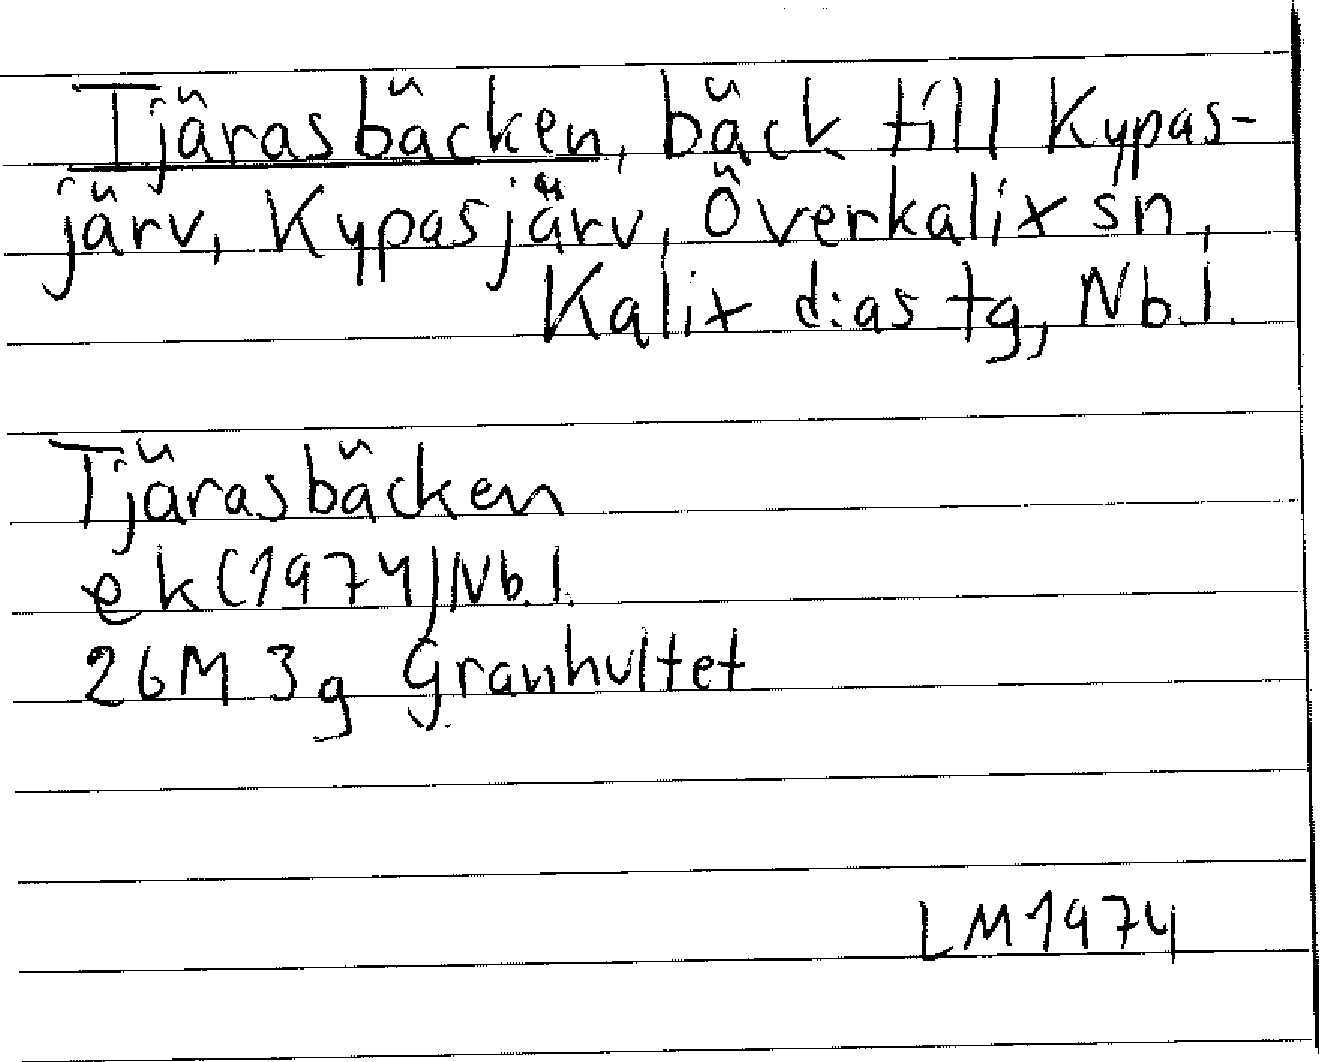 Tjärasbäcken, bäck till Kypas-
järv, Kypasjärv, Överkalix sn,
Kalix d:as tg, Nb.l.
Tjärasbäcken
ek (1974) Nb.l.
26M 3g Granhultet
LM1974